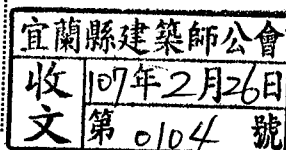 宜蘭縣建築師公會
收文
107年2月26日
第 0104 號